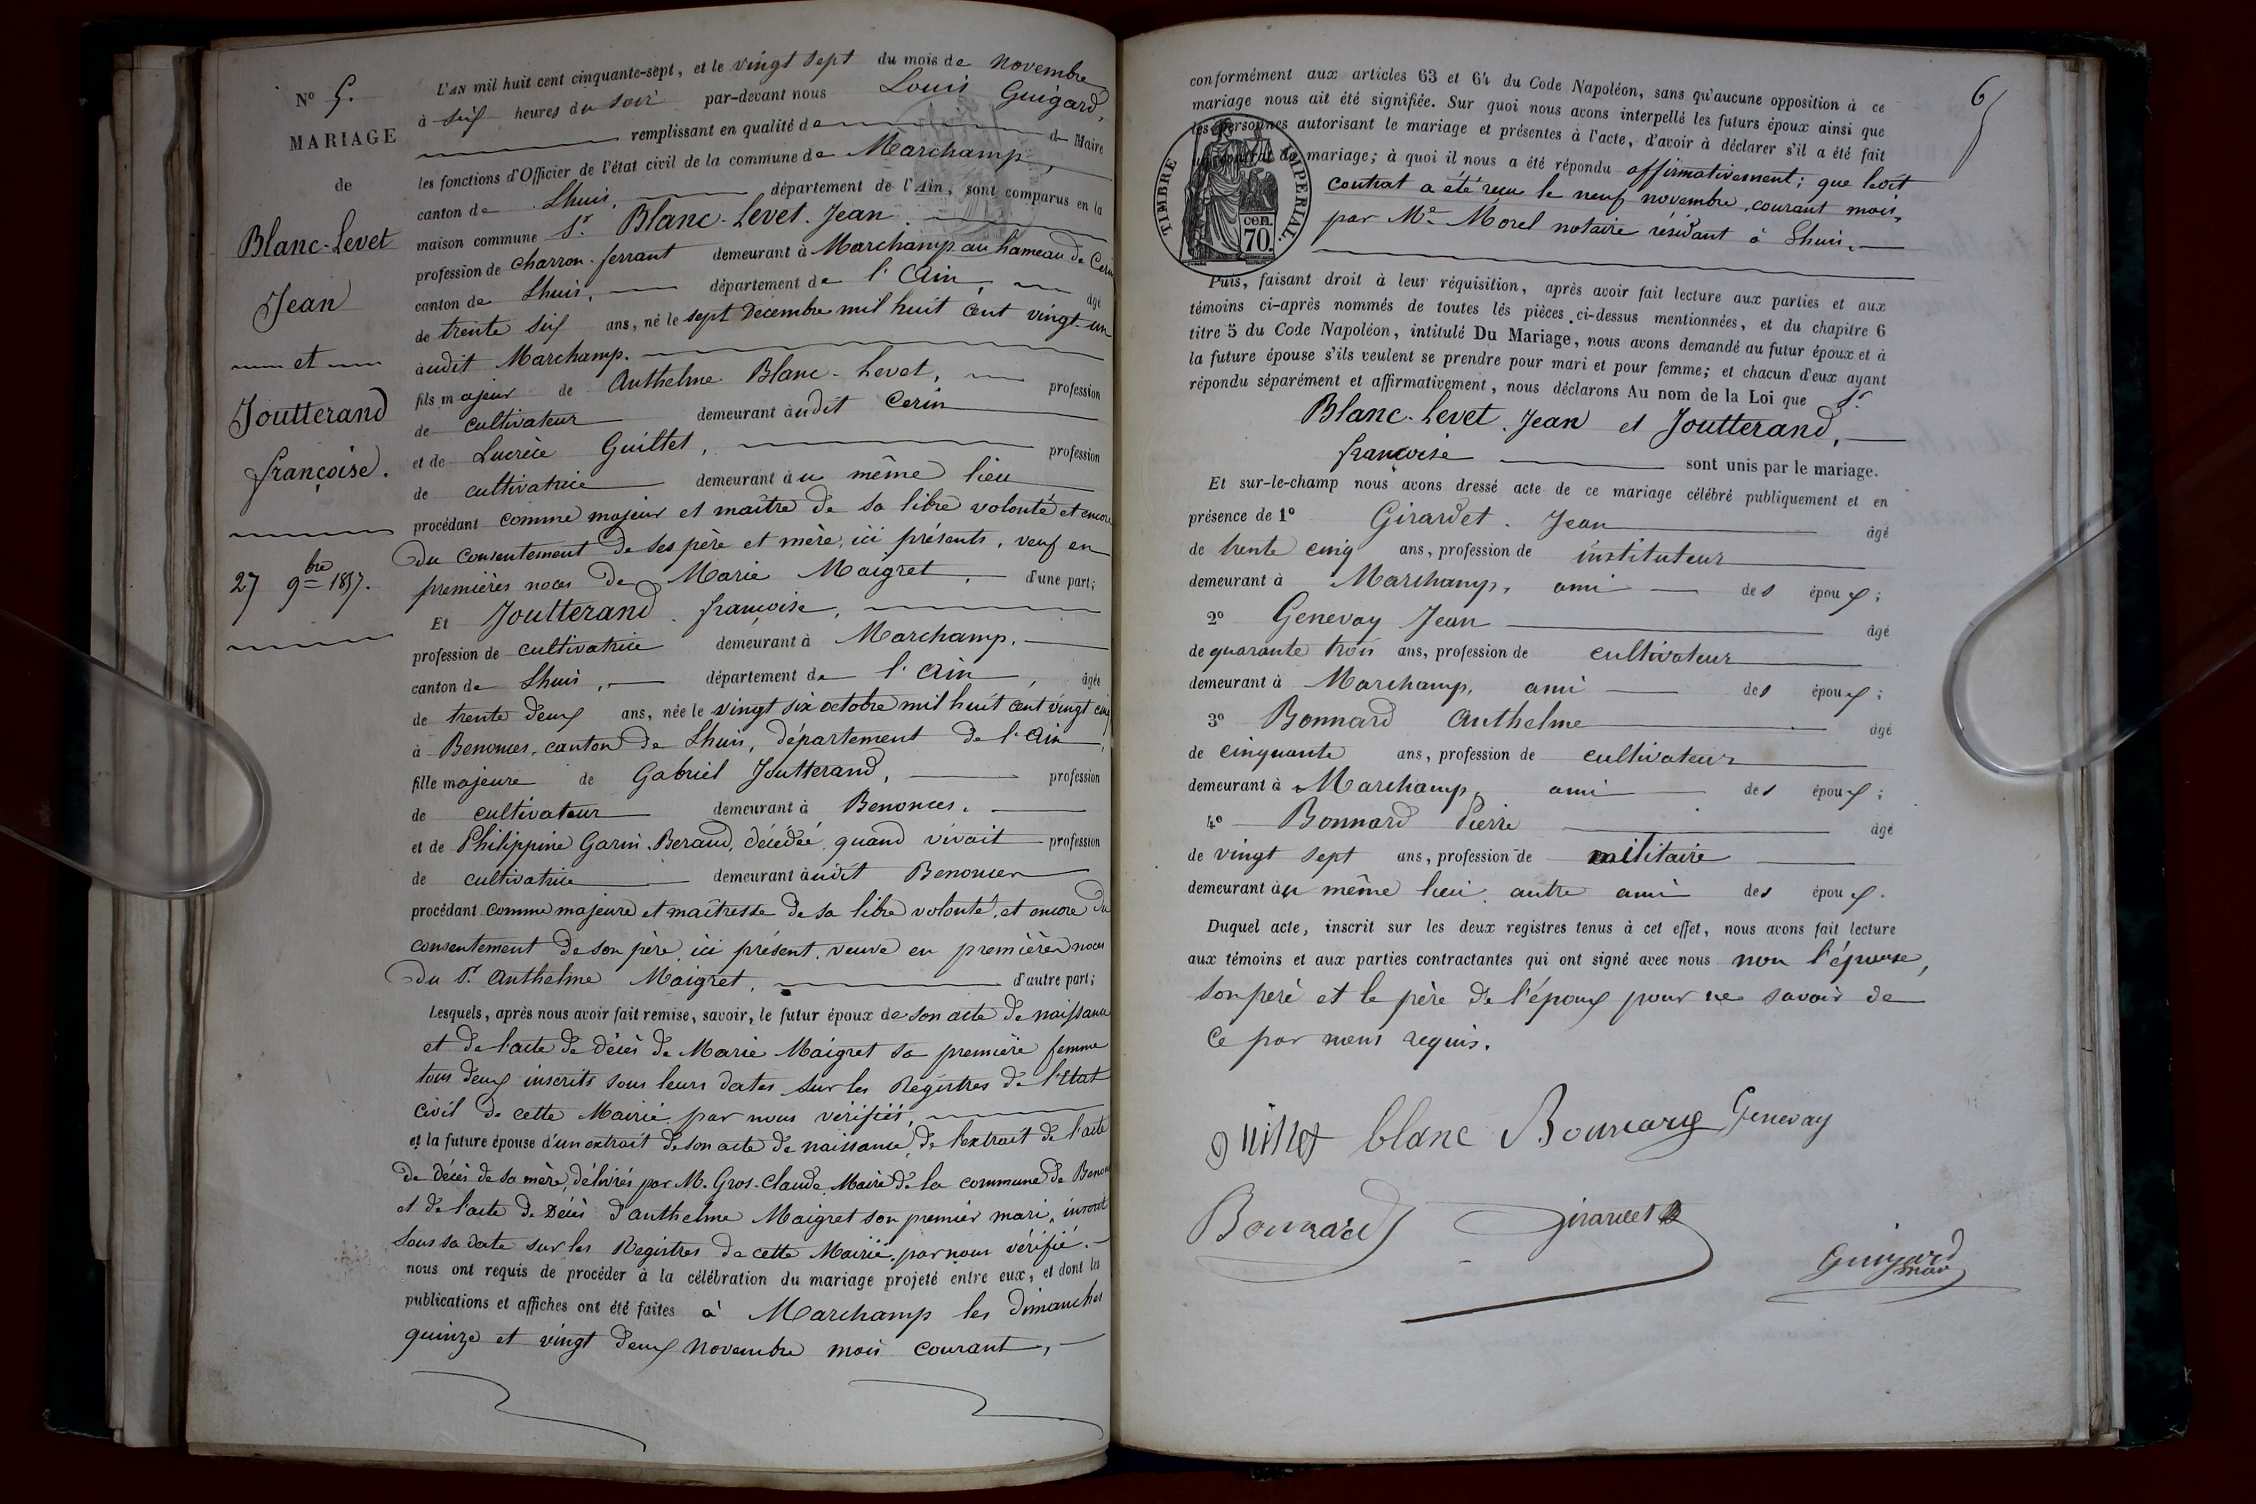 N° 5.
MARIAGE
de
Blanc-Levet
Jean
et
Joutterand
françoise.
27 9bre 1857.
L'AN mil huit cent cinquante-sept, et le vingt sept du mois de novembre
à six heures du soir par-devant nous Louis Guigard,
remplissant en qualité de de Maire
les fonctions d'Officier de l'état civil de la commune de Marchamp,
canton de Lhuis, département de l'Ain, sont comparus en la
maison commune Sr. Blanc-Levet. Jean
profession de charron-ferrant demeurant à Marchamp au hameau de Cerin
canton de Lhuis, département de l'Ain, âgé
de trente six ans, né le sept Décembre mil huit cent vingt-un
àudit Marchamp.
fils majeur de Anthelme Blanc-Levet, profession
de cultivateur demeurant àudit Cerin
et de Lucrèce Guillet, profession
de cultivatrice demeurant àu même lieu
procédant comme majeur et maître de sa libre volonté et encore
du consentement de ses père et mère, ici présents, veuf en
premières noces de Marie Maigret, d'une part;
Et Joutterand françoise,
profession de cultivatrice demeurant à Marchamp,
canton de Lhuis, département de l'Ain, âgée
de trente deux ans, née le vingt six octobre mil huit cent vingt cinq
à Benonces, canton de Lhuis, département de l'Ain,
fille majeure de Gabriel Joutterand, profession
de cultivateur demeurant à Benonces,
et de Philippine Garin-Beraud, décédée, quand vivait profession
de cultivatrice demeurant àudit Benonces
procédant comme majeure et maîtresse de sa libre volonté, et encore du
consentement de son père ici présent, veuve en premières noces
du Sr. Anthelme Maigret, d'autre part;
Lesquels, après nous avoir fait remise, savoir, le futur époux de son acte de naissance
et de l'acte de décès de Marie Maigret sa première femme
tous deux inscrits sous leurs dates sur les Registres de l'Etat
civil de cette Mairie par nous vérifiés,
et la future épouse d'un extrait de son acte de naissance, de l'extrait de l'acte
de décès de sa mère, délivrés par M. Gros-Claude, Maire de la commune de Benon
et de l'acte de Décès d'anthelme Maigret son premier mari, inscrit
sous sa date sur les Registres de cette Mairie, par nous vérifié.
nous ont requis de procéder à la célébration du mariage projeté entre eux, et dont les
publications et affiches ont été faites à Marchamp les dimanches
quinze et vingt deux novembre mois courant,
6
conformément aux articles 63 et 64 du Code Napoléon, sans qu'aucune opposition à ce
mariage nous ait été signifiée. Sur quoi nous avons interpellé les futurs époux ainsi que
les personnes autorisant le mariage et présentes à l'acte, d'avoir à déclarer s'il a été fait
un contrat de mariage; à quoi il nous a été répondu affirmativement; que ledit
contrat a été reçu le neuf novembre, courant mois,
par Me. Morel notaire résidant à Lhuis.
TIMBRE IMPERIAL.
cen.
70.
Puis, faisant droit à leur réquisition, après avoir fait lecture aux parties et aux
témoins ci-après nommés de toutes les pièces ci-dessus mentionnées, et du chapitre 6
titre 5 du Code Napoléon, intitulé Du Mariage, nous avons demandé au futur époux et à
la future épouse s'ils veulent se prendre pour mari et pour femme; et chacun d'eux ayant
répondu séparément et affirmativement, nous déclarons Au nom de la Loi que Sr.
Blanc-Levet. Jean et Joutterand,
françoise sont unis par le mariage.
Et sur-le-champ nous avons dressé acte de ce mariage célébré publiquement et en
présence de 1° Girardet. Jean âgé
de trente cinq ans, profession de instituteur
demeurant à Marchamp, ami des époux;
2° Genevay Jean âgé
de quarante trois ans, profession de cultivateur
demeurant à Marchamp, ami des époux;
3° Bonnard Anthelme âgé
de cinquante ans, profession de cultivateur
demeurant à Marchamp, ami des époux;
4° Bonnard Pierre âgé
de vingt sept ans, profession de militaire
demeurant àu même lieu, autre ami des époux.
Duquel acte, inscrit sur les deux registres tenus à cet effet, nous avons fait lecture
aux témoins et aux parties contractantes qui ont signé avec nous non l'épouse,
son père et le père de l'époux pour ne savoir de
ce par nous requis.
guillet blanc Bonnard Genevay
Bonnard Girardet
Guigard
maire